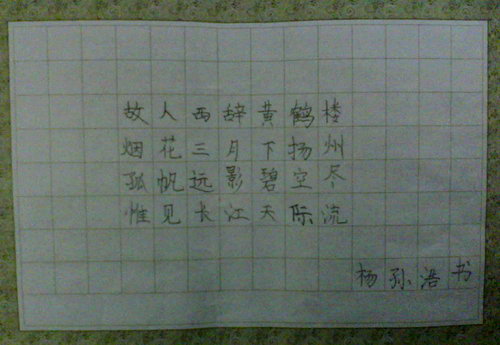 故人西辞黄鹤楼
烟花三月下扬州
孤帆远影碧空尽
惟见长江天际流
杨孙浩书